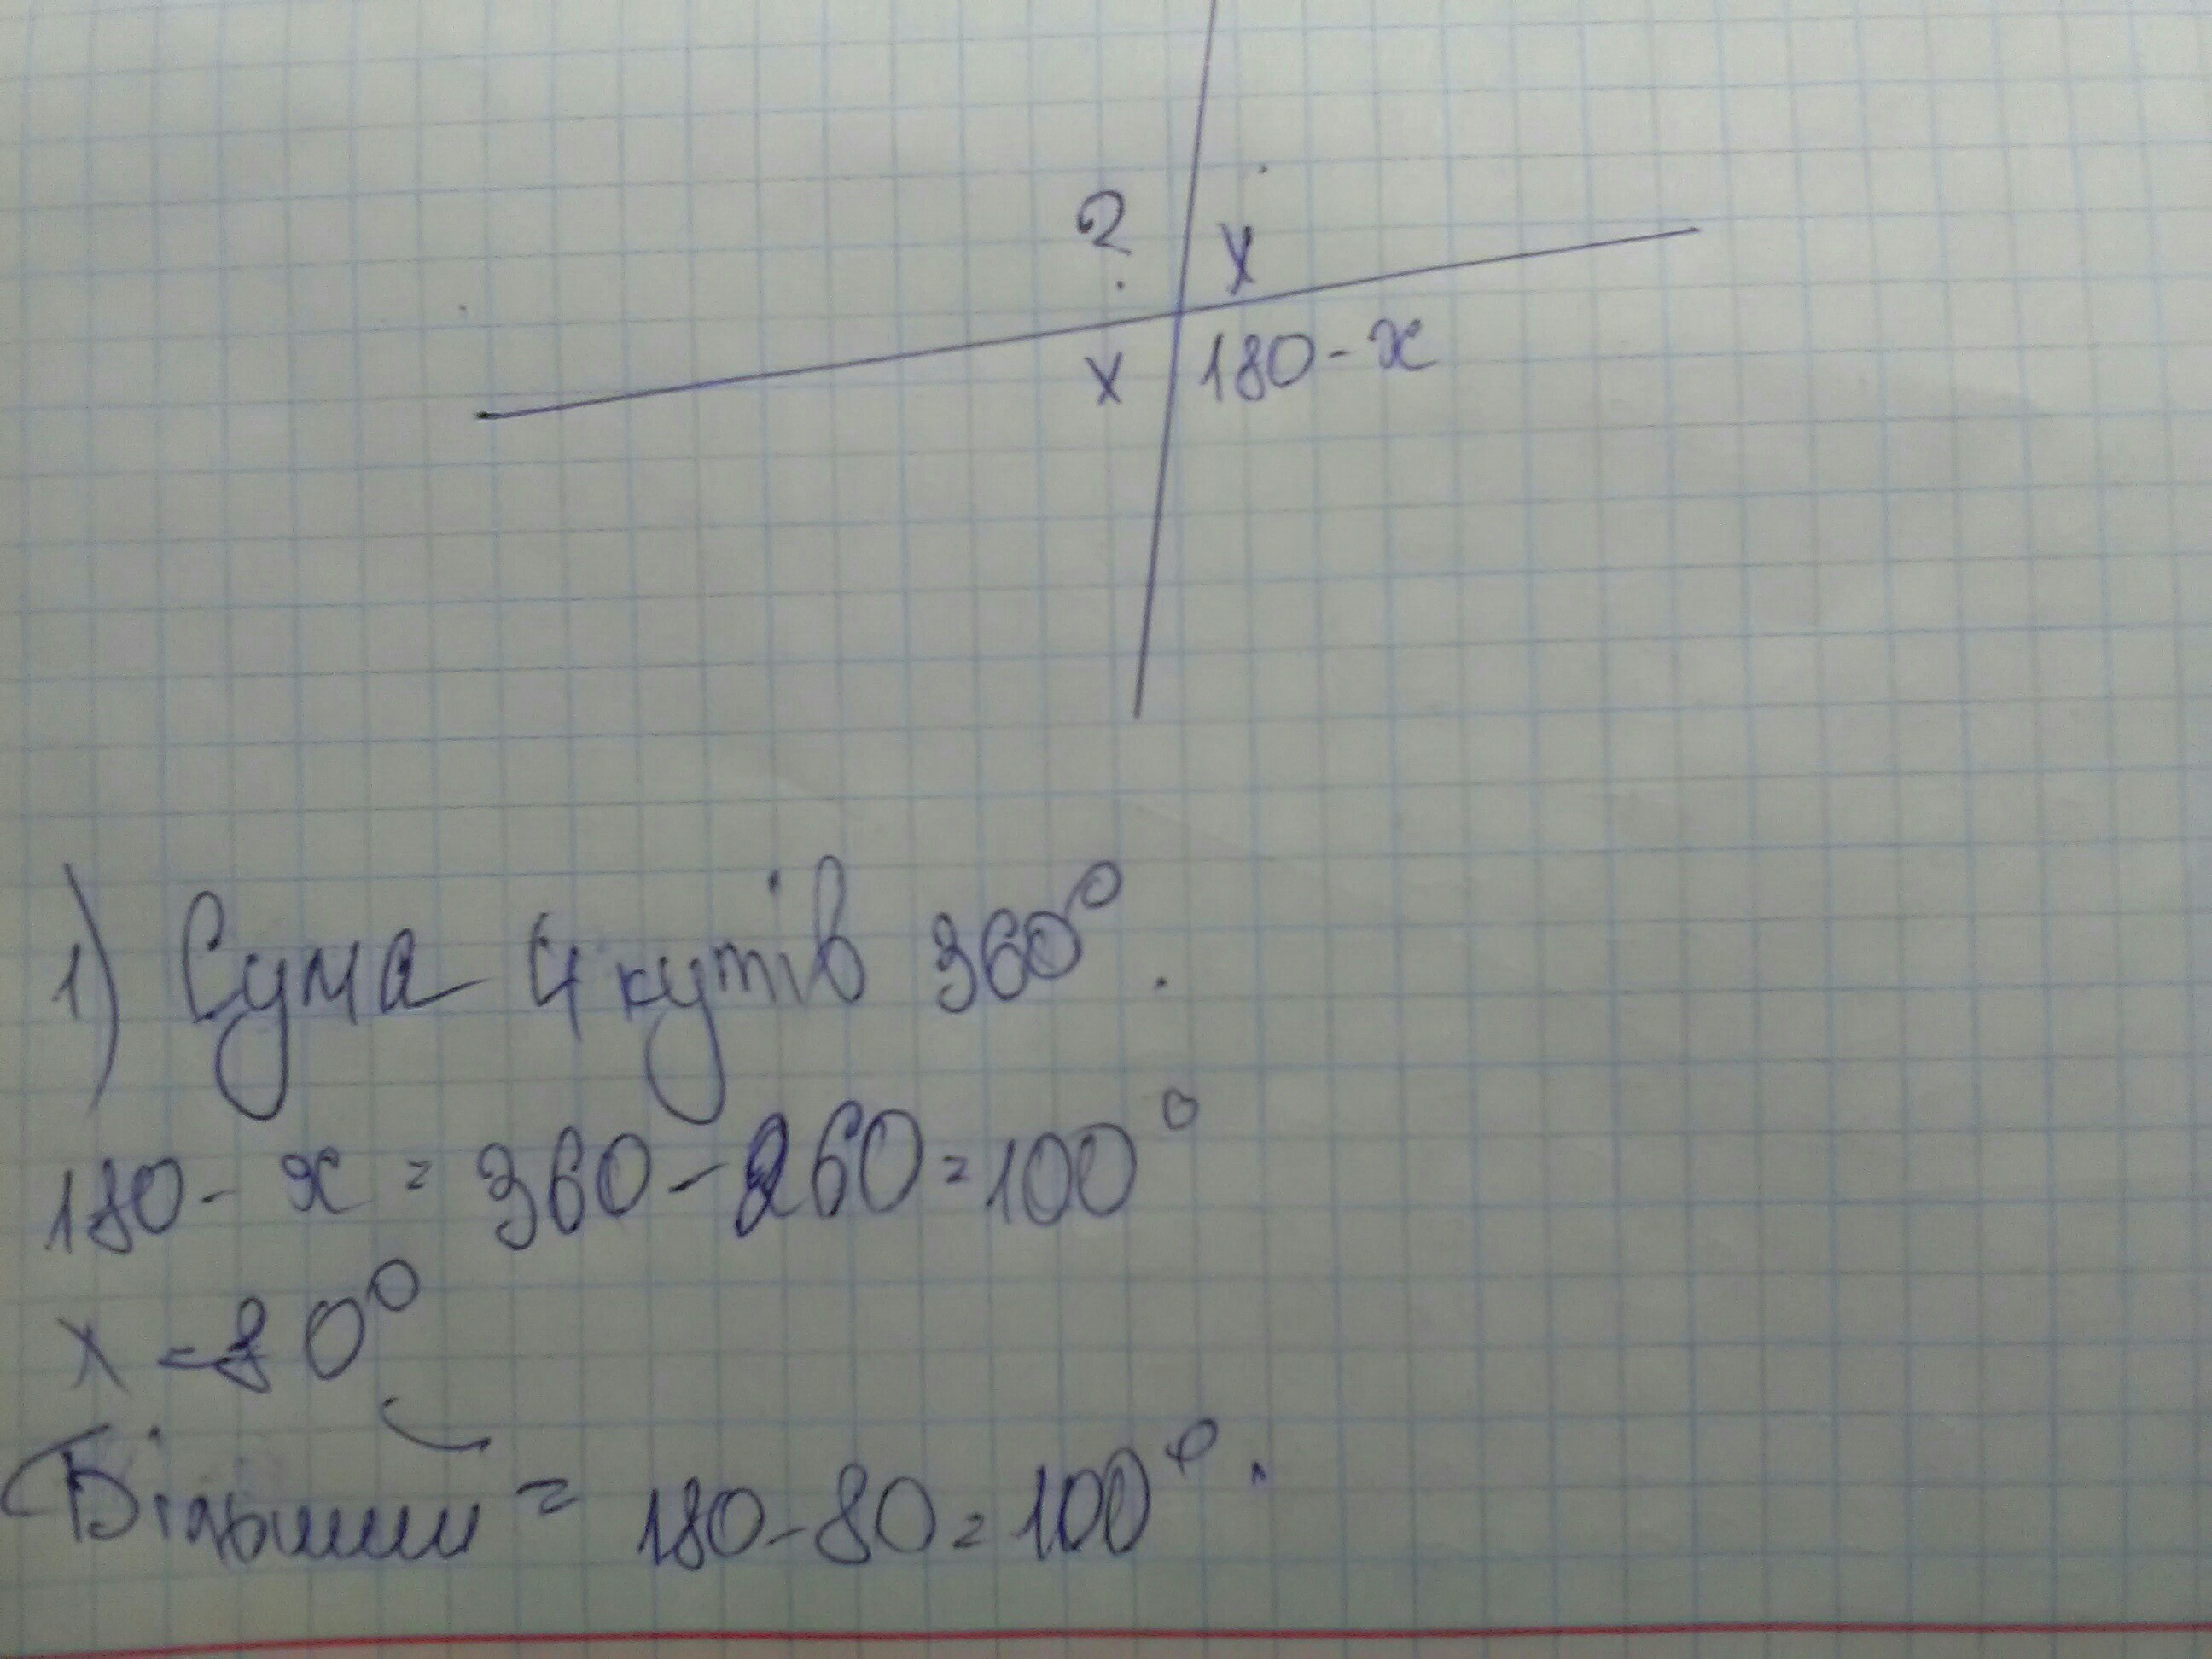 ? x
x 180 - x
1) Сума 4 кутів 360°.
180 - x = 360 - 260 = 100°
x = 80°
Більший = 180 - 80 = 100°.